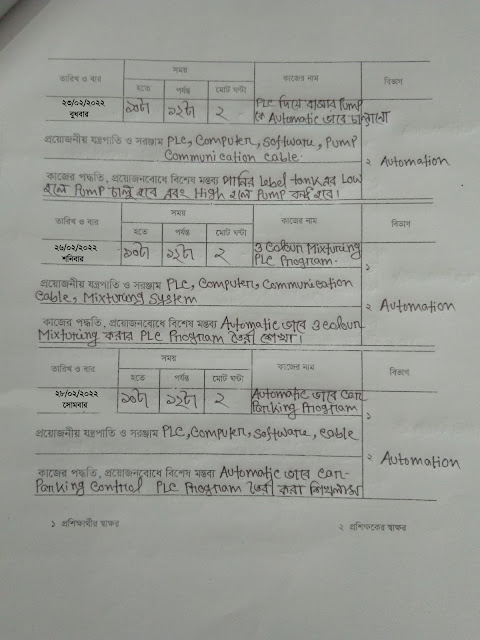 তারিখ ও বার সময় কাজের নাম বিভাগ
হতে পর্যন্ত মোট ঘন্টা
২৩/০২/২০২২ বুধবার ১০টা ১২টা ২ PLC দিয়ে বাসার Pump
কে Automatic ভাবে চালানো
প্রয়োজনীয় যন্ত্রপাতি ও সরঞ্জাম PLC, Computer, Software, Pump
Communication Cable.
২ Automation
কাজের পদ্ধতি, প্রয়োজনবোধে বিশেষ মন্তব্য পানির Lebel tank এর Low
হলে Pump চালু হবে এবং High হলে Pump বন্ধ হবে।
তারিখ ও বার সময় কাজের নাম বিভাগ
হতে পর্যন্ত মোট ঘন্টা
২৬/০২/২০২২ শনিবার ১০টা ১২টা ২ 3 Colour Mixturing
PLC Program.
১
প্রয়োজনীয় যন্ত্রপাতি ও সরঞ্জাম PLC, Computer, Communication
Cable, Mixturing System
২ Automation
কাজের পদ্ধতি, প্রয়োজনবোধে বিশেষ মন্তব্য Automatic ভাবে 3 colour
Mixturing করার PLC Program তৈরী শেখা।
তারিখ ও বার সময় কাজের নাম বিভাগ
হতে পর্যন্ত মোট ঘন্টা
২৮/০২/২০২২ সোমবার ১০টা ১২টা ২ Automatic ভাবে Car
Parking Program
১
প্রয়োজনীয় যন্ত্রপাতি ও সরঞ্জাম PLC, Computer, Software, Cable
২ Automation
কাজের পদ্ধতি, প্রয়োজনবোধে বিশেষ মন্তব্য Automatic ভাবে Car-
Parking Control PLC Program তৈরী করা শিখলাম
১ প্রশিক্ষার্থীর স্বাক্ষর ২ প্রশিক্ষকের স্বাক্ষর